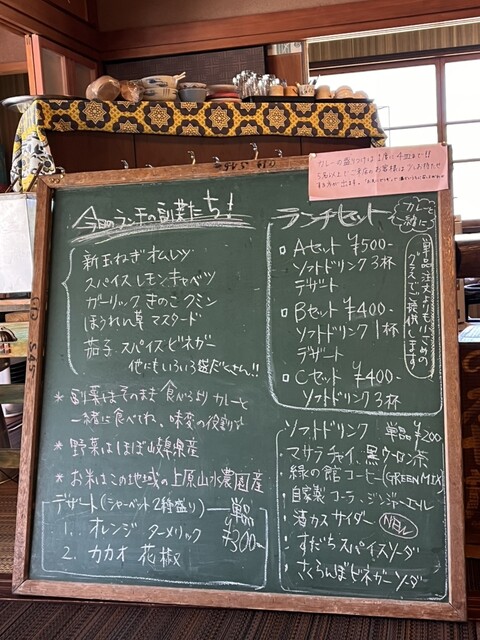 カレーの盛りつけは1度に4皿まで!!
5名以上でご来店のお客様は少しお待たせ
する方が出ます。
今日のランチの副菜たち!
新玉ねぎオムレツ
スパイスレモンキャベツ
ガーリックきのこクミン
ほうれん草マスタード
茄子スパイスビネガー
他にもいろいろ盛だくさん!!
*副菜はそのまま食べるよりカレーと
一緒に食べてね、味変の役割す
*野菜はほぼ岐阜県産
*お米はこの地域の上原山水農園産
デザート(シャーベット2種盛り) 単品
¥300
1. オレンジ ターメリック
2. カカオ 花椒
ランチセット
カレーと
一緒に
単品注文よりも小さめの
グラスでご提供します
Aセット ¥500-
ソフトドリンク3杯
デザート
Bセット ¥400-
ソフトドリンク1杯
デザート
Cセット ¥400-
ソフトドリンク3杯
ソフトドリンク 単品¥200
マサラチャイ、黒ウーロン茶
緑の館コーヒー(GREEN MIX)
自家製コーラ、ジンジャーエール
酒カスサイダー NEW
すだちスパイスソーダ
さくらんぼビネガーソーダ